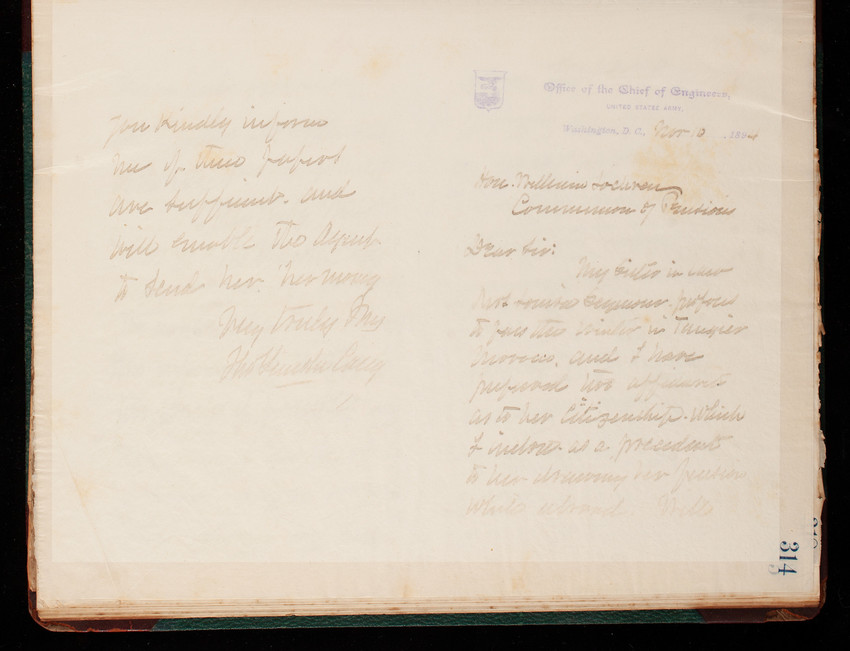 Office of the Chief of Engineers,
UNITED STATES ARMY,
Washington, D. C., Nov 10, 189
Hon. William Lochren
Commissioner of Pensions
Dear Sir:
My sister in law
Mrs Louisa Seymour
to pass the winter in Tangier
Morocco, and I have
prepared two affidavits
as to her Citizenship. Which
I inclose as a precedent
to her drawing her pension
while abroad. Will
you kindly inform
me if these papers
are sufficient. and
will enable the Agent
to send her. her money
Very truly Yrs
Thos Lincoln Casey
314